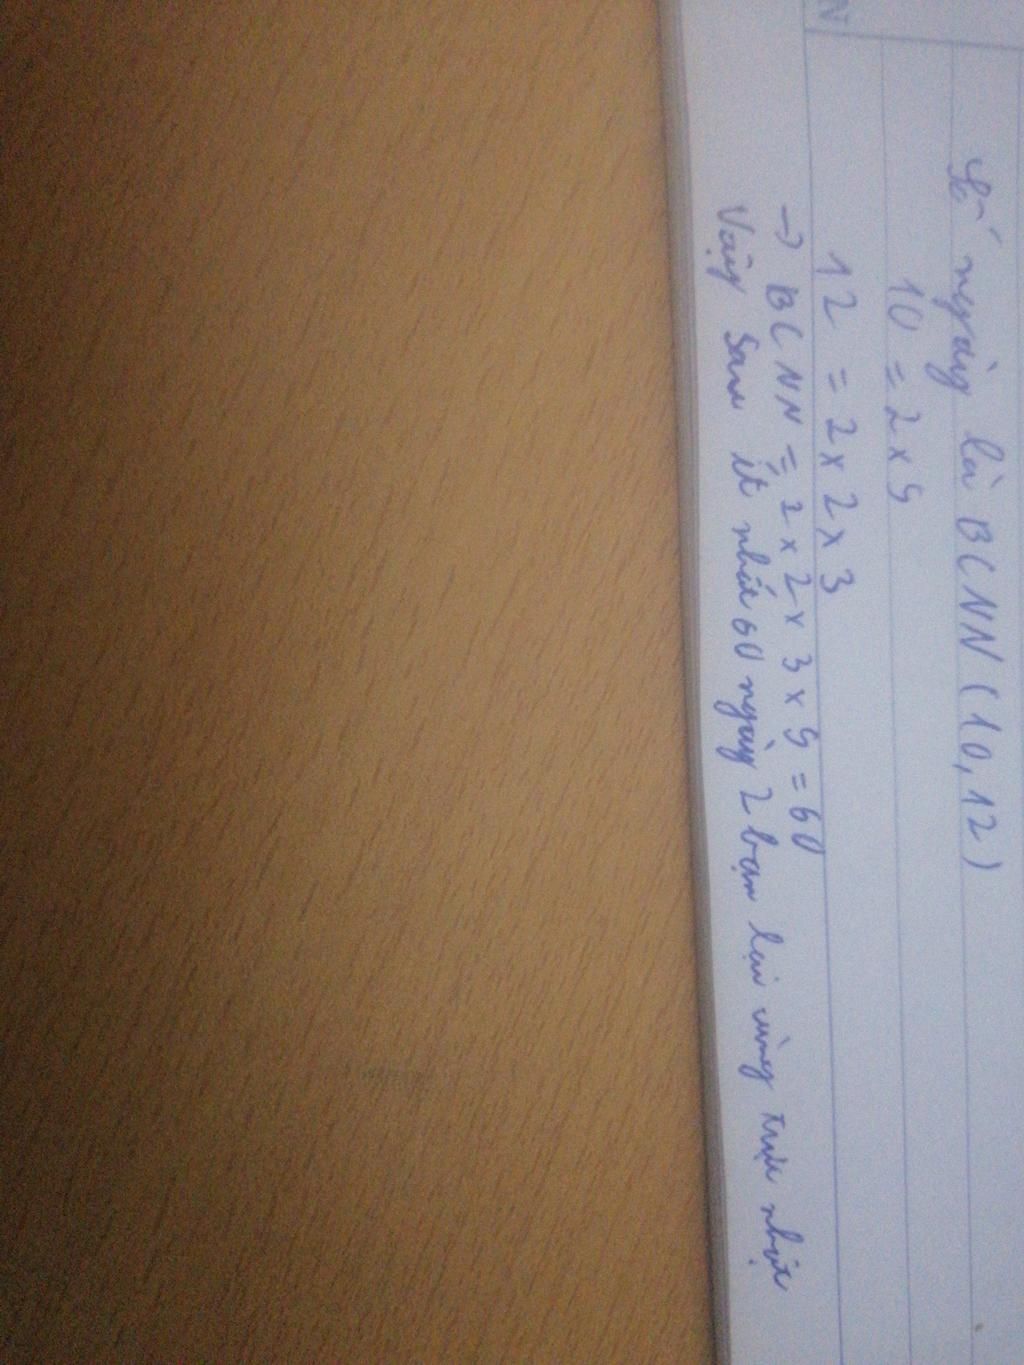 Số ngày là BCNN (10, 12)
10 = 2 x 5
12 = 2 x 2 x 3
→ BCNN = 2 x 2 x 3 x 5 = 60
Vậy sau ít nhất 60 ngày 2 bạn lại cùng trực nhật
N